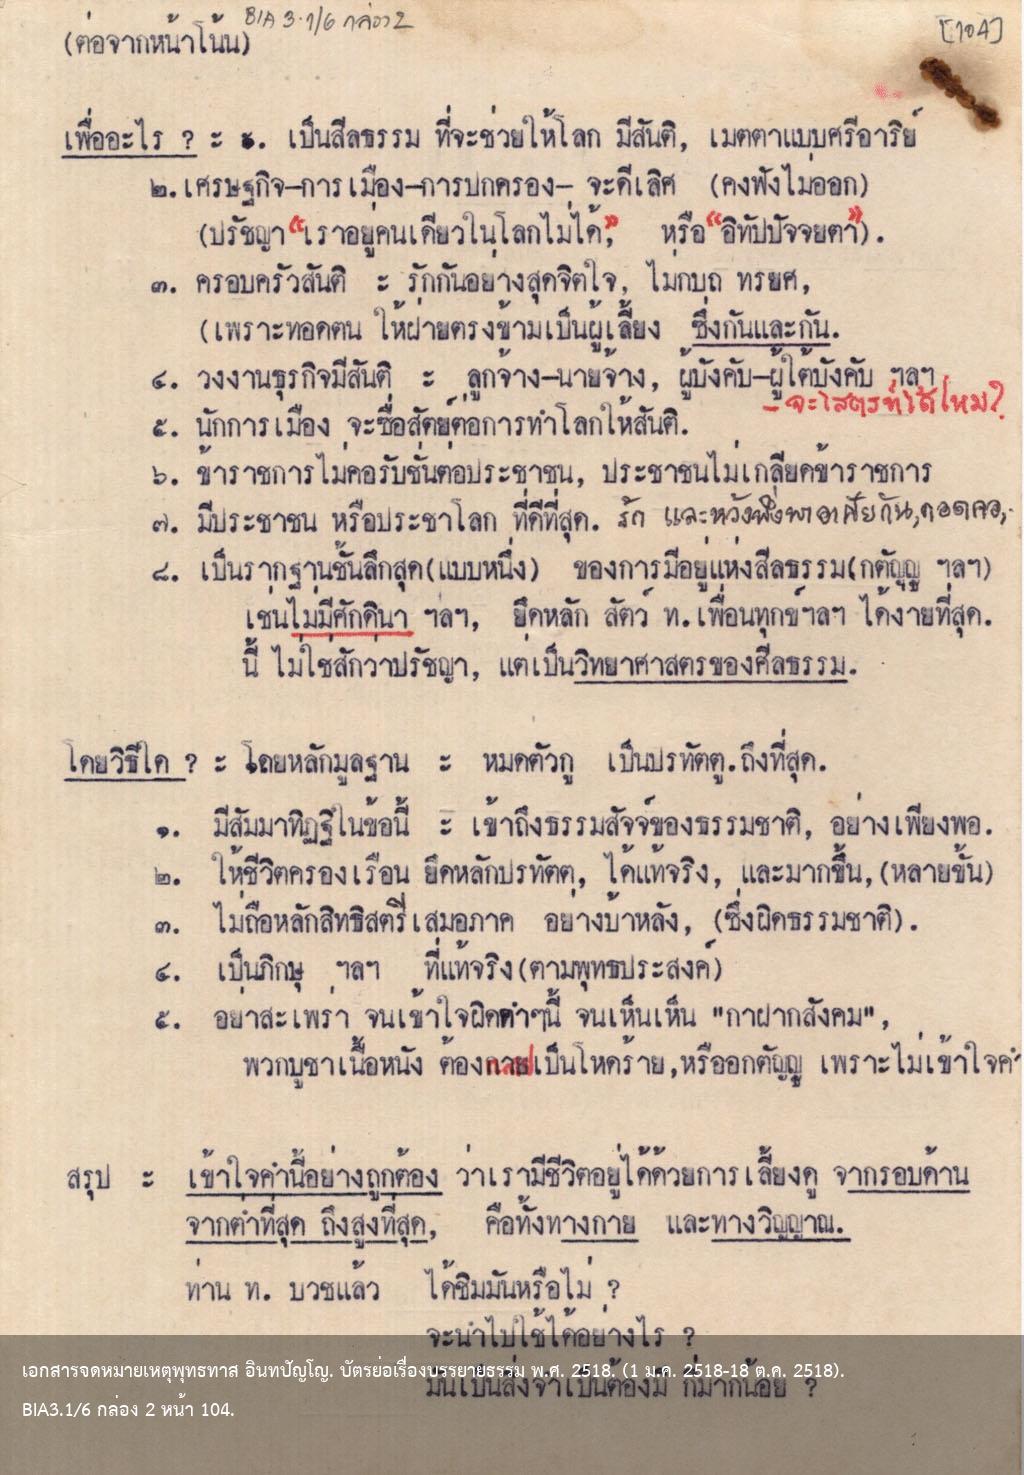 BIA 3.1/6 กล่อง 2
[104]
(ต่อจากหน้าโน้น)
เพื่ออะไร ? ะ ๑. เป็นสีลธรรม ที่จะช่วยให้โลก มีสันติ, เมตตาแบบศรีอาริย์
๒. เศรษฐกิจ-การเมือง-การปกครอง- จะดีเลิศ (คงฟังไม่ออก)
(ปรัชญา "เราอยู่คนเดียวในโลกไม่ได้," หรือ "อิทัปปัจจยตา").
๓. ครอบครัวสันติ ะ รักกันอย่างสุดจิตใจ, ไม่กบถ ทรยศ,
(เพราะทอดตน ให้ฝ่ายตรงข้ามเป็นผู้เลี้ยง ซึ่งกันและกัน.
๔. วงงานธุรกิจมีสันติ ะ ลูกจ้าง-นายจ้าง, ผู้บังคับ-ผู้ใต้บังคับ ฯลฯ
- จะไสตรท์ได้ไหม?
๕. นักการเมือง จะซื่อสัตย์ต่อการทำโลกให้สันติ.
๖. ข้าราชการไม่คอรับชั่นต่อประชาชน, ประชาชนไม่เกลียดข้าราชการ
๗. มีประชาชน หรือประชาโลก ที่ดีที่สุด. รัก และหวังพึ่งพาอาศัยกัน, กอดคอ,.
๘. เป็นรากฐานชั้นลึกสุด(แบบหนึ่ง) ของการมีอยู่แห่งสีลธรรม(กตัญญู ฯลฯ)
เช่นไม่มีศักดินา ฯลฯ, ยึดหลัก สัตว์ ท. เพื่อนทุกข์ฯลฯ ได้งายที่สุด.
นี้ ไม่ใช่สักว่าปรัชญา, แต่เป็นวิทยาศาสตรของศีลธรรม.
โดยวิธีใด ? ะ โดยหลักมูลฐาน ะ หมดตัวกู เป็นปรทัตตู.ถึงที่สุด.
๑. มีสัมมาทิฏฐิในข้อนี้ ะ เข้าถึงธรรมสัจจ์ของธรรมชาติ, อย่างเพียงพอ.
๒. ให้ชีวิตครองเรือน ยึดหลักปรทัตตุ, ได้แท้จริง, และมากขึ้น,(หลายขั้น)
๓. ไม่ถือหลักสิทธิสตรีเสมอภาค อย่างบ้าหลัง, (ซึ่งผิดธรรมชาติ).
๔. เป็นภิกษุ ฯลฯ ที่แท้จริง(ตามพุทธประสงค์)
๕. อย่าสะเพร่า จนเข้าใจผิดคำๆนี้ จนเห็นเห็น "กาฝากสังคม",
พวกบูชาเนื้อหนัง ต้องกลายเป็นโหดร้าย,หรืออกตัญญู เพราะไม่เข้าใจคำ
สรุป ะ เข้าใจคำนี้อย่างถูกต้อง ว่าเรามีชีวิตอยู่ได้ด้วยการเลี้ยงดู จากรอบด้าน
จากต่ำที่สุด ถึงสูงที่สุด, คือทั้งทางกาย และทางวิญญาณ.
ท่าน ท. บวชแล้ว ได้ชิมมันหรือไม่ ?
จะนำไปใช้ได้อย่างไร ?
เอกสารจดหมายเหตุพุทธทาส อินทปัญโญ. บัตรย่อเรื่องบรรยายธรรม พ.ศ. 2518. (1 ม.ค. 2518-18 ต.ค. 2518).
มันเป็นสิ่งจำเป็นต้องมี กี่มากน้อย ?
BIA3.1/6 กล่อง 2 หน้า 104.